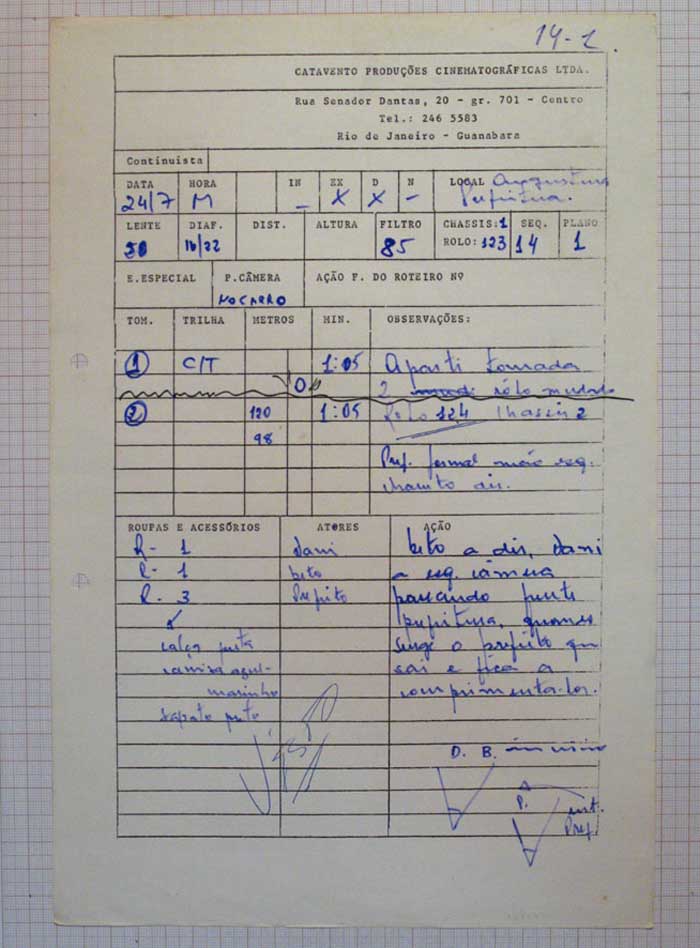 14-1
CATAVENTO PRODUÇÕES CINEMATOGRÁFICAS LTDA.
Rua Senador Dantas, 20 - gr. 701 - Centro
Tel.: 246 5583
Rio de Janeiro - Guanabara
Continuista
DATA HORA IN EX D N LOCAL
24/7 M - X X -
LENTE DIAF. DIST. ALTURA FILTRO CHASSIS:1 SEQ. PLANO
50 16/22 85 ROLO: 123 14 1
E.ESPECIAL P.CÂMERA AÇÃO F. DO ROTEIRO Nº
TOM. TRILHA METROS MIN. OBSERVAÇÕES:
1 C/T 1:05 A parti tomada
2 rôlo
2 120 1:05 Rolo 124 chassis 2
98
Pref.
ROUPAS E ACESSÓRIOS ATORES AÇÃO
R- 1 dani beto a dir, dani
R- 1 beto a esq. câmera
R. 3 Prefeito passando
prefeitura, quando
calça preta surge o prefeito que
camisa azul- sai e fica a
marinho comprimenta-los.
sapato preto
D. B.
P.
Pref.